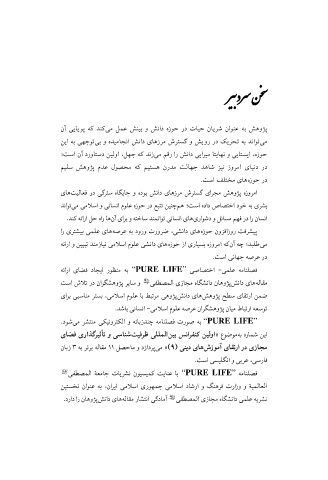 سخن سردبیر
پژوهش به عنوان شریان حیات در حوزه دانش و بینش عمل می‌کند که پویایی آن
می‌تواند به تحریک در رویش و گسترش مرزهای دانش انجامیده و بی‌توجهی به این
حوزه، ایستایی و نهایتا میرایی دانش را رقم می‌زند که جهل، اولین دستاورد آن است؛
در دنیای امروز نیز شاهد جهالت مدرن هستیم که محصول عدم پژوهش سلیم
در حوزه‌های مختلف است.
امروزه پژوهش مجرای گسترش مرزهای دانش بوده و جایگاه سترگی در فعالیت‌های
بشری به خود اختصاص داده است؛ همچنین تتبع در حوزه علوم انسانی و اسلامی می‌تواند
انسان را در فهم مسائل و دشواری‌های انسانی توانمند ساخته و برای آن‌ها راه حل ارائه کند.
پیشرفت روزافزون حوزه‌های دانشی، ضرورت ورود به عرصه‌های علمی بیشتری را
می‌طلبد؛ چه آن‌که امروزه بسیاری از حوزه‌های دانشی علوم اسلامی نیازمند تبیین و ارائه
در عرصه جهانی است.
فصلنامه علمی- اختصاصی "PURE LIFE" به منظور ایجاد فضای ارائه
مقاله‌های دانش‌پژوهان دانشگاه مجازی المصطفی و سایر پژوهشگران در تلاش است
ضمن ارتقای سطح پژوهش‌های دانش‌پژوهی مرتبط با علوم اسلامی، بستر مناسبی برای
توسعه ارتباط میان پژوهشگران عرصه علوم اسلامی- انسانی باشد.
"PURE LIFE" به صورت فصلنامه چندزبانه و الکترونیکی منتشر می‌شود.
این شماره به‌موضوع «اولین کنفرانس بین‌المللی ظرفیت‌شناسی و تأثیرگذاری فضای
مجازی در ارتقای آموزش‌های دینی (۹)» می‌پردازد و ماحصل ۱۱ مقاله برتر به ۳ زبان
فارسی، عربی و انگلیسی است.
فصلنامه "PURE LIFE" با عنایت کمیسیون نشریات جامعة المصطفی
العالمیة و وزارت فرهنگ و ارشاد اسلامی جمهوری اسلامی ایران، به عنوان نخستین
نشریه علمی دانشگاه مجازی المصطفی آمادگی انتشار مقاله‌های دانش‌پژوهان را دارد.